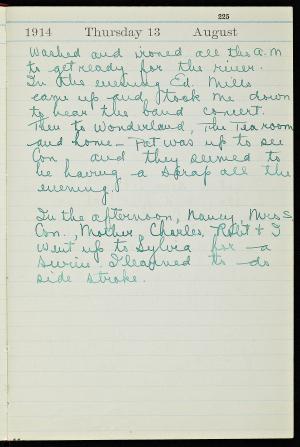 225
1914 Thursday 13 August
Washed and ironed all the a.m
to get ready for the river.
In the evening Ed. Mills
came up and took me down
to hear the band concert.
Then to Wonderland, The Tea room
and home - Pat was up to see
Con and they seemed to
be having a scrap all the
evening.
In the afternoon, Nancy, Miss
Con., Mother, Charles, Robt & I
went up to Sylvia for a
swim. I learned to do
side stroke.